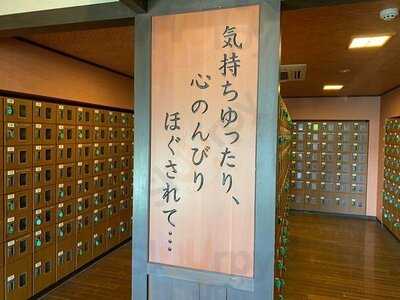 気持ちゆったり、
心のんびり
ほぐされて…